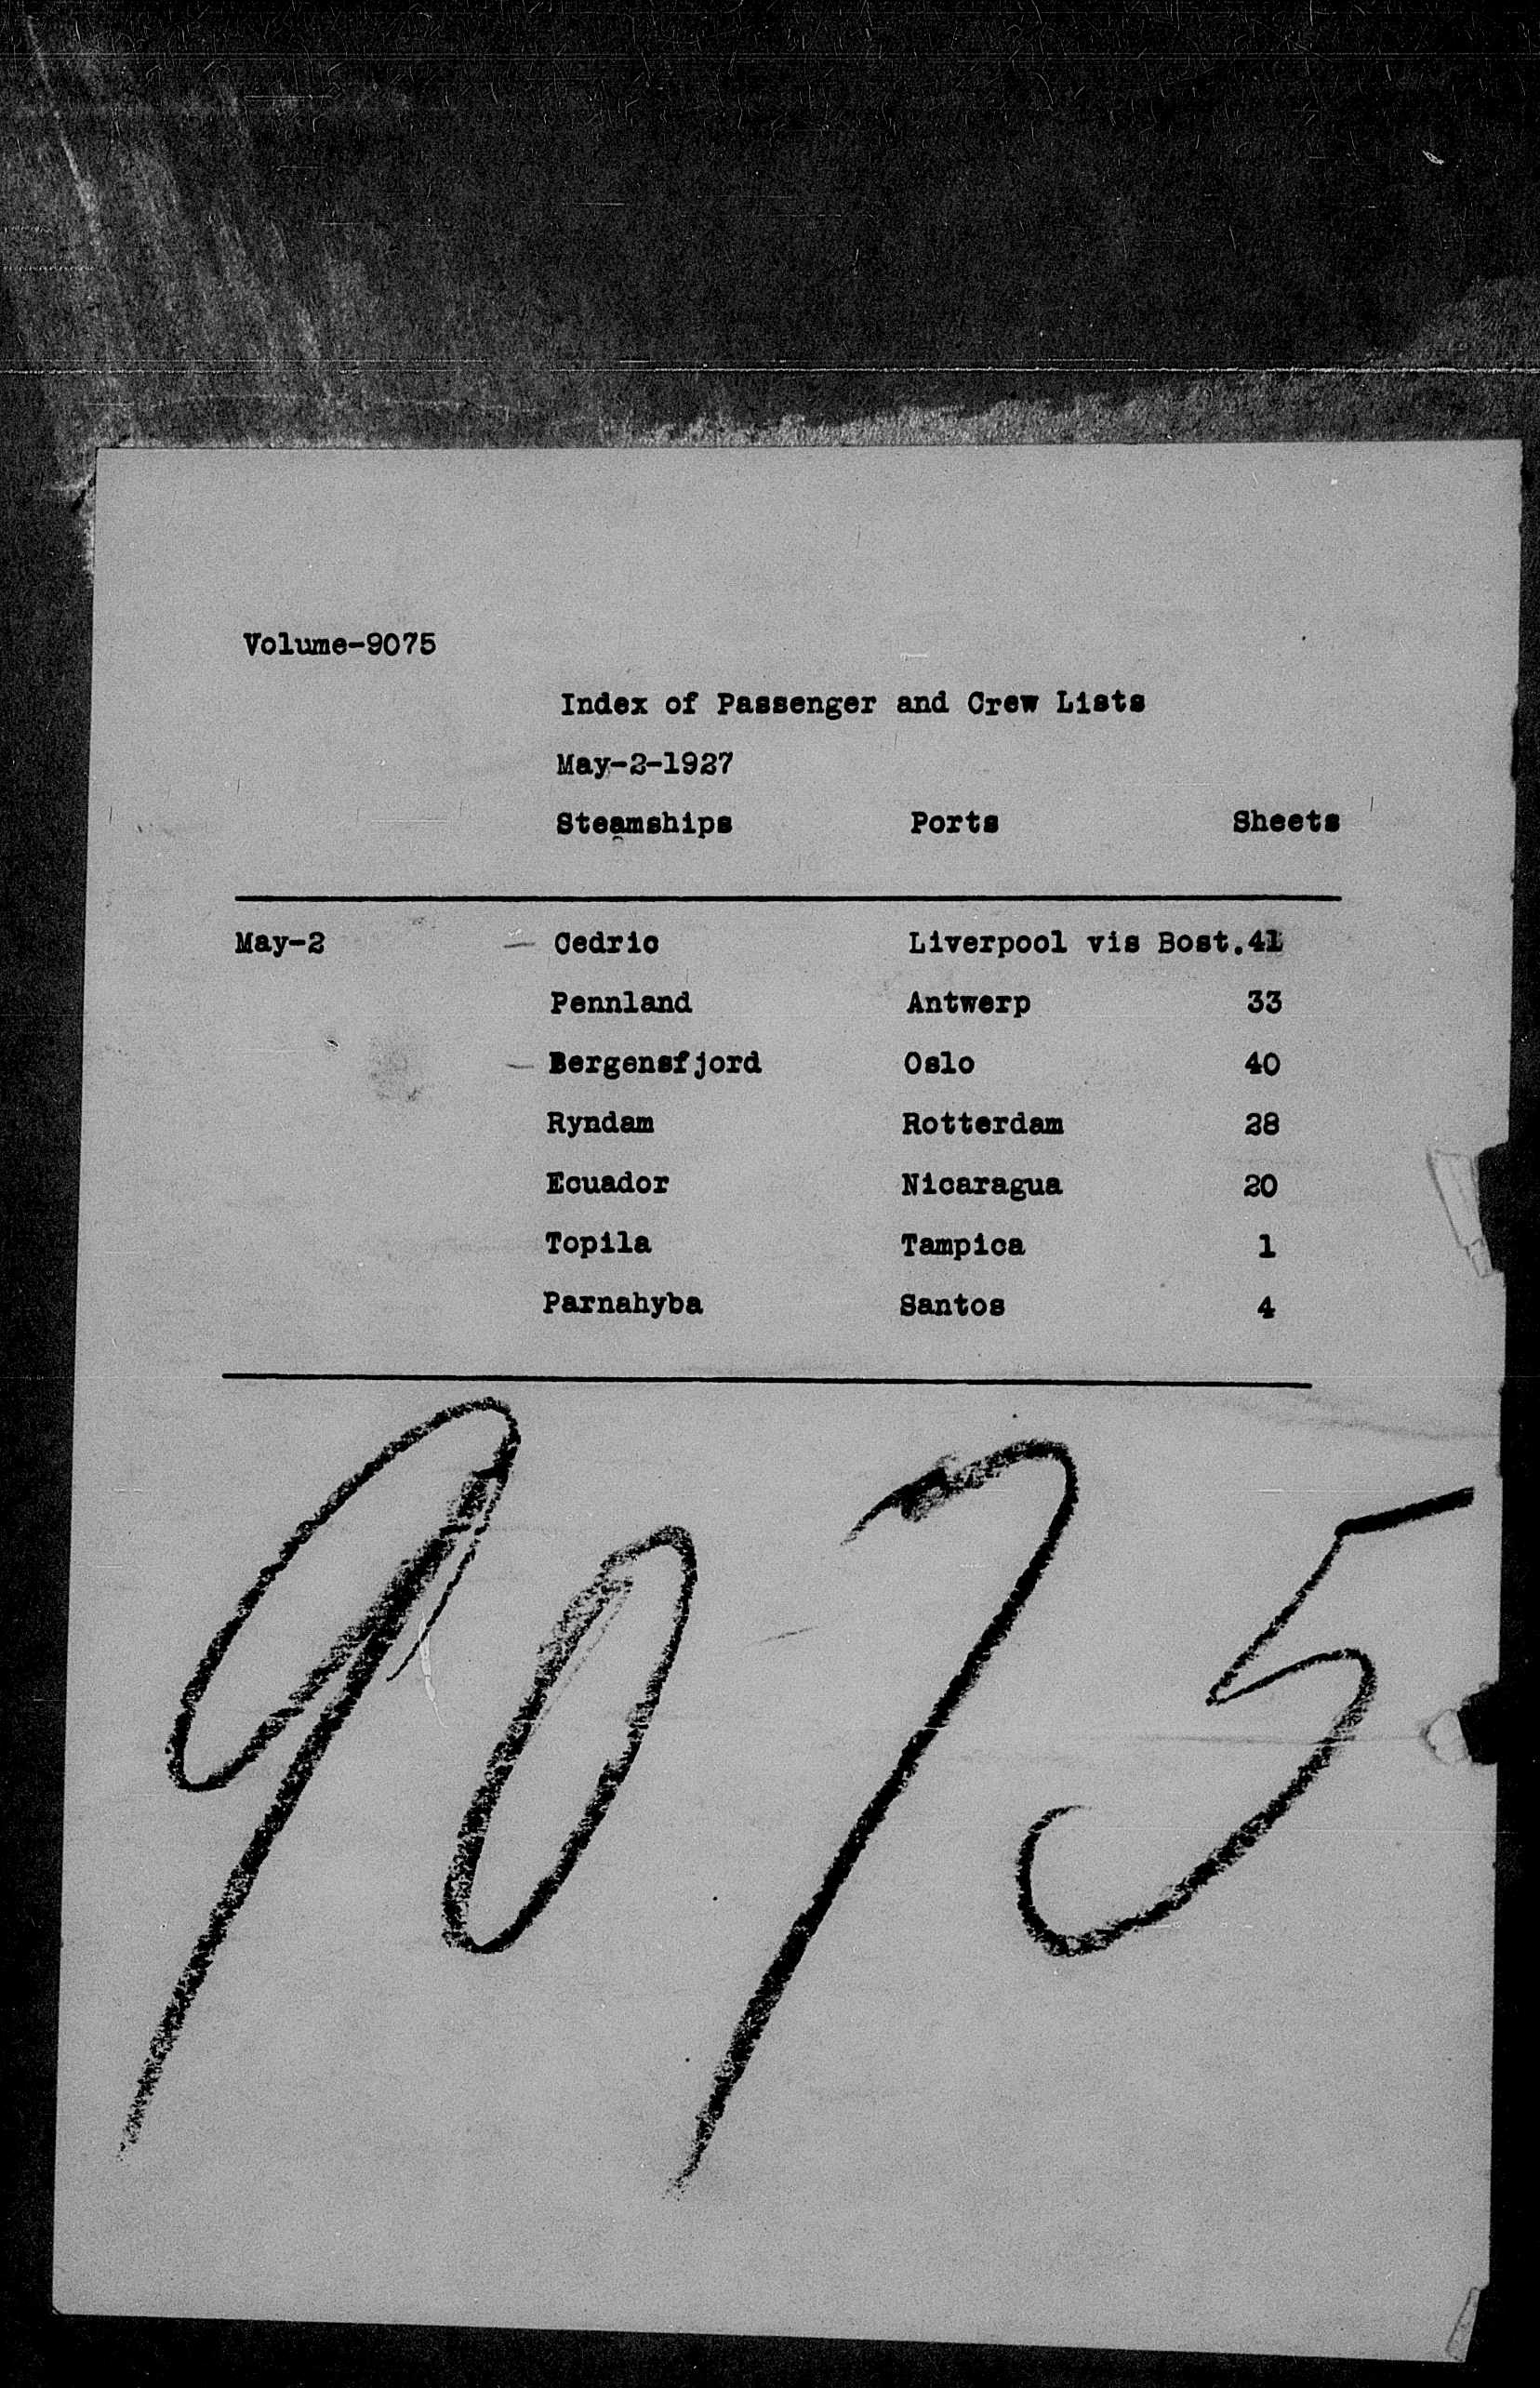 Volume-9075
Index of Passenger and Crew Lists
May-2-1927
Steamships Ports Sheets
May-2 - Cedric Liverpool vis Bost. 41
Pennland Antwerp 33
- Bergensfjord Oslo 40
Ryndam Rotterdam 28
Ecuador Nicaragua 20
Topila Tampica 1
Parnahyba Santos 4
9075